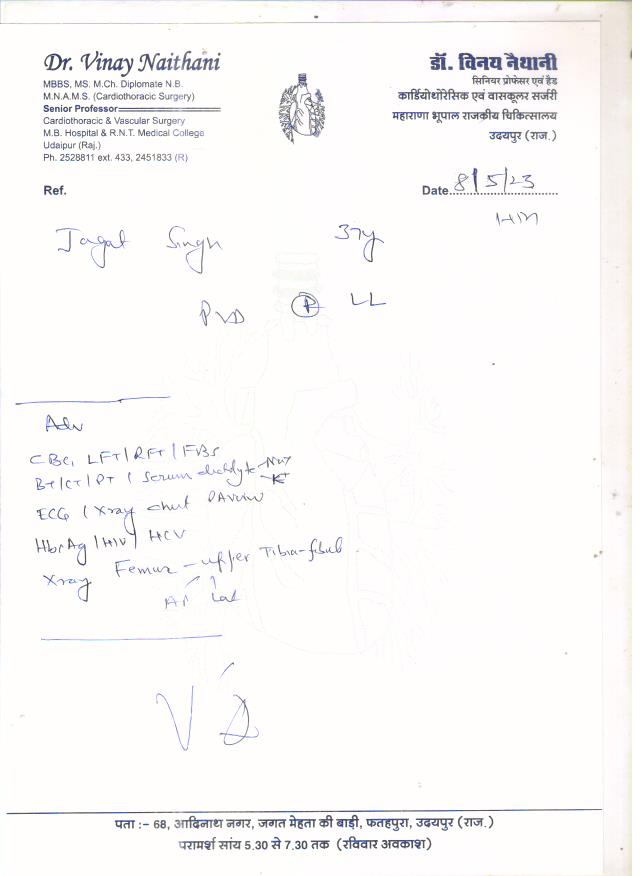 Dr. Vinay Naithani
MBBS, MS. M.Ch. Diplomate N.B.
M.N.A.M.S. (Cardiothoracic Surgery)
Senior Professor
Cardiothoracic & Vascular Surgery
M.B. Hospital & R.N.T. Medical College
Udaipur (Raj.)
Ph. 2528811 ext. 433, 2451833 (R)
डॉ. विनय नैथानी
सिनियर प्रोफेसर एवं हैड
कार्डियोथोरेसिक एवं वासकूलर सर्जरी
महाराणा भूपाल राजकीय चिकित्सालय
उदयपुर (राज.)
Ref.
Date 8/5/23
Jagat Singh 37y
PVD R LL
Adv
CBC, LFT/RFT/FBS
BT/CT/PT / Serum
ECG / Xray chest PA view
HbrAg / HIV / HCV
Xray Femur - upper Tibia-fibub
AP Lat
पता :– 68, आदिनाथ नगर, जगत मेहता की बाड़ी, फतहपुरा, उदयपुर (राज.)
परामर्श सांय 5.30 से 7.30 तक (रविवार अवकाश)